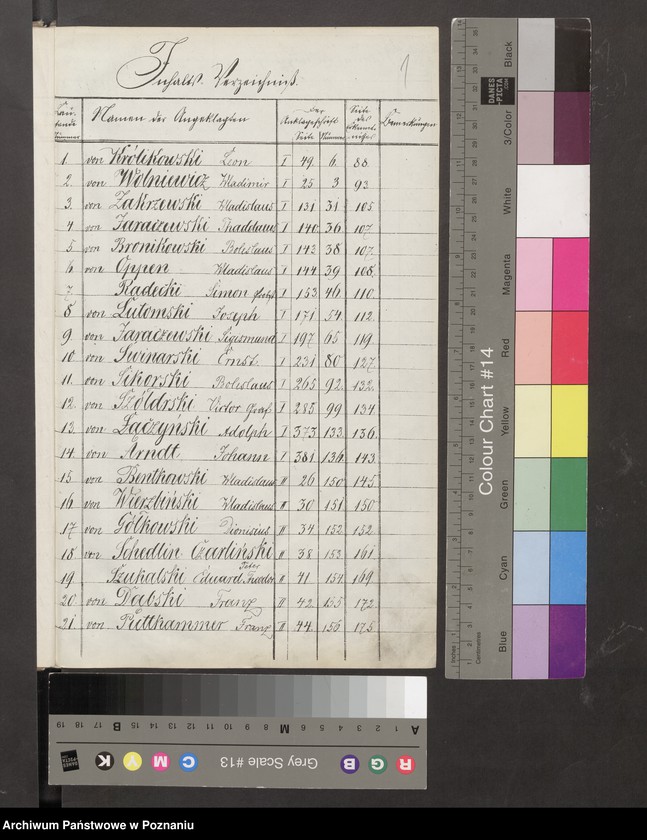 1
Inhalts-Verzeichniß.
Lau-fende Nummer | Namen der Angeklagten | Der Anklageschrift Seite | Nummer | Seite des | Bemerkungen
1 von Królikowski Leon I 49 6. 88
2. von Wolniewicz Wladimir I 25 3 93
3. von Zakrzewski Wladislaus I 131 31 105
4 von Jaraczewski Thaddaeus I 140 36 107.
5. von Bronikowski Boleslaus I 143 38 107.
6. von Oppen Wladislaus I 144 39 108.
7. Radecki Simon I 153 46 110.
8 von Lutomski Joseph I 171 54 112.
9. von Jaraczewski Sigismund I 197 65 119.
10. von Swinarski Ernst. I 231 80 127.
11. von Sikorski Boleslaus I 265 92. 132.
12. von Szółdrski Victor Graf I 285 99 134
13. von Łączyński Adolph I 373 133. 136.
14. von Arndt Johann I 381 136. 143.
15 von Bentkowski Wladislaus II 26 150 145.
16 von Wierzbiński Wladislaus II 30 151 150
17 von Gółkowski Dionisius II 34. 152 152
18 von Schedlin Czarliński II 38 153 161
Peter
19. Szukalski Eduard II 41. 154 169.
20 von Dąbski Franz II 42. 155 172.
21 von Puttkammer Franz II 44. 156 175.
DANES PICTA .COM
Colour Chart #14
Black
3/Color
White
Magenta
Red
Yellow
Green
Cyan
Blue
Inches
Centimetres
19 18 17 B 16 15 14 13 12 11 10 9 8 M 7 6 5 4 3 2 1 A
K Y M C Grey Scale #13 B G R
Archiwum Państwowe w Poznaniu